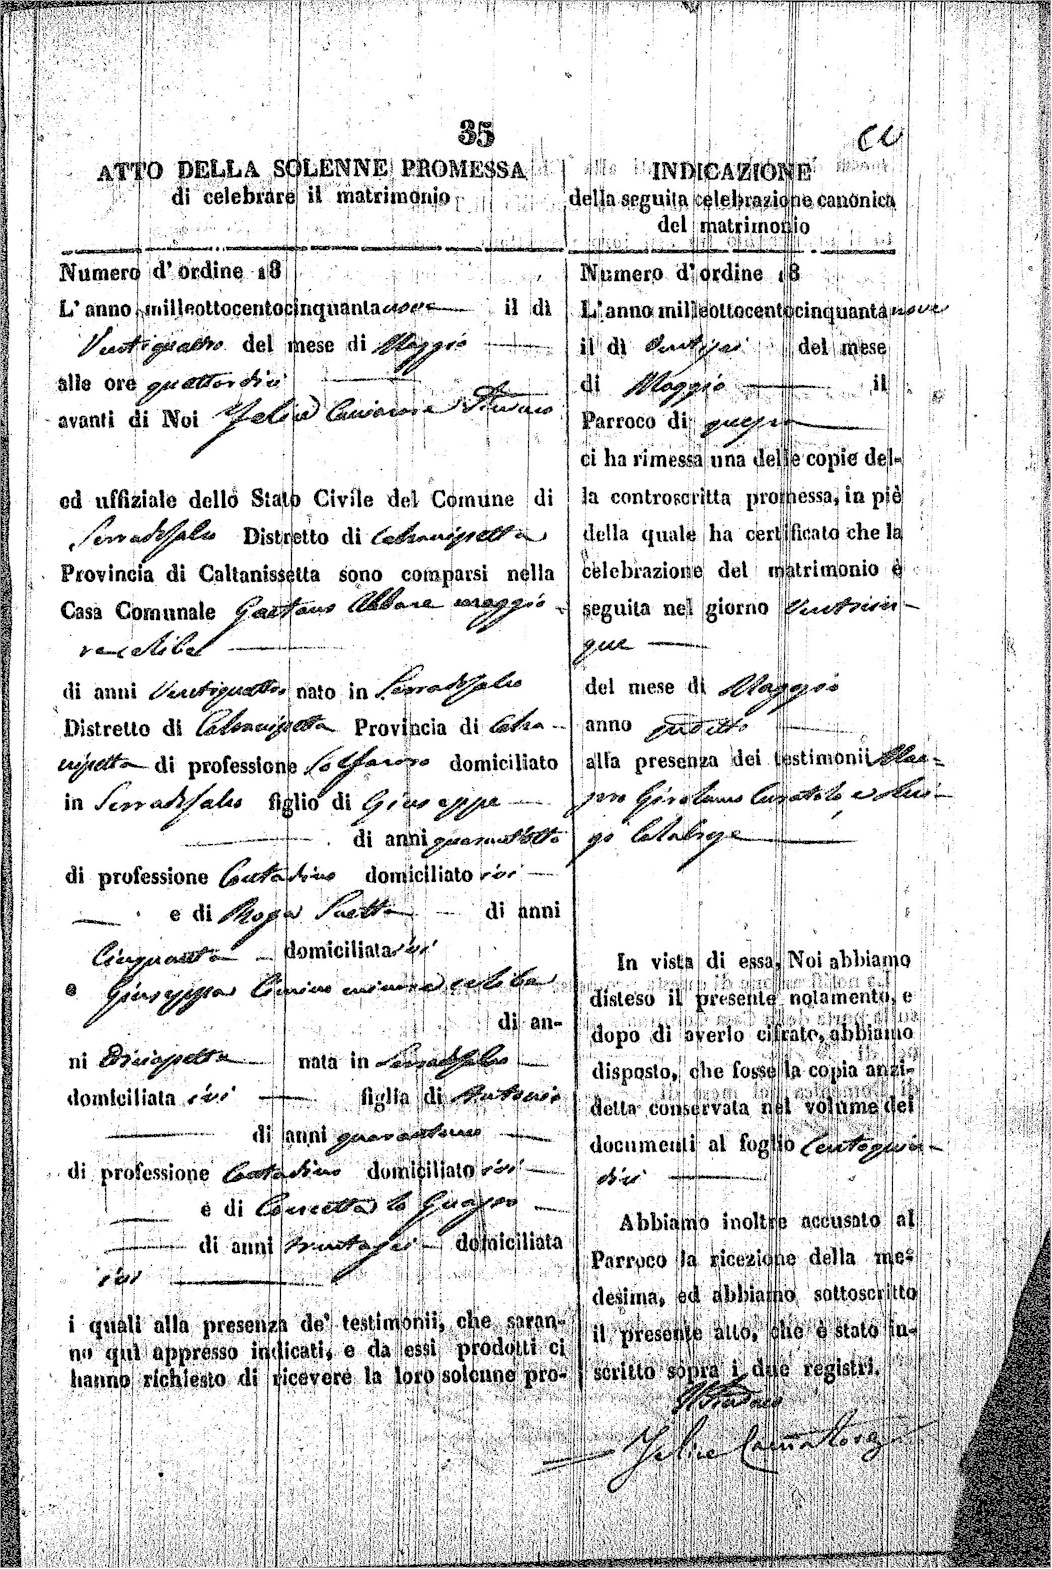 35
ATTO DELLA SOLENNE PROMESSA
di celebrare il matrimonio
Numero d'ordine 18
L'anno milleottocentocinquantanove il dì
Ventiquattro del mese di Maggio
alle ore quattordici
avanti di Noi Felice Sindaco
ed uffiziale dello Stato Civile del Comune di
Serradifalco Distretto di Caltanissetta
Provincia di Caltanissetta sono comparsi nella
Casa Comunale Gaetano Abbate maggio-
re celibe
di anni Ventiquattro nato in Serradifalco
Distretto di Caltanissetta Provincia di Calta-
nissetta di professione Solfararo domiciliato
in Serradifalco figlio di Giuseppe
di anni quarantotto
di professione Contadino domiciliato ivi
e di Rosa di anni
Cinquanta domiciliata ivi
e Giuseppa Cimino minore celibe
di an-
ni Diciasette nata in Serradifalco
domiciliata ivi figlia di Antonio
di anni quarantuno
di professione Contadino domiciliato ivi
e di Concetta lo Guasso
di anni trentasei domiciliata
ivi
i quali alla presenza de' testimonii, che saran-
no qui appresso indicati, e da essi prodotti ci
hanno richiesto di ricevere la loro solenne pro-
INDICAZIONE
della seguita celebrazione canonica
del matrimonio
Numero d'ordine 18
L'anno milleottocentocinquantanove
il dì Ventisei del mese
di Maggio il
Parroco di questa
ci ha rimessa una delle copie del-
la controscritta promessa, in piè
della quale ha certificato che la
celebrazione del matrimonio è
seguita nel giorno Venticin-
que
del mese di Maggio
anno suddetto
alla presenza dei testimonii Mas-
tro Girolamo Curatolo e Lui-
gi Calabrese
In vista di essa, Noi abbiamo
disteso il presente notamento, e
dopo di averlo cifrato, abbiamo
disposto, che fosse la copia anzi-
detta conservata nel volume dei
documenti al foglio Centoquin-
dici
Abbiamo inoltre accusato al
Parroco la ricezione della me-
desima, ed abbiamo sottoscritto
il presente atto, che è stato in-
scritto sopra i due registri.
Il Sindaco
Felice